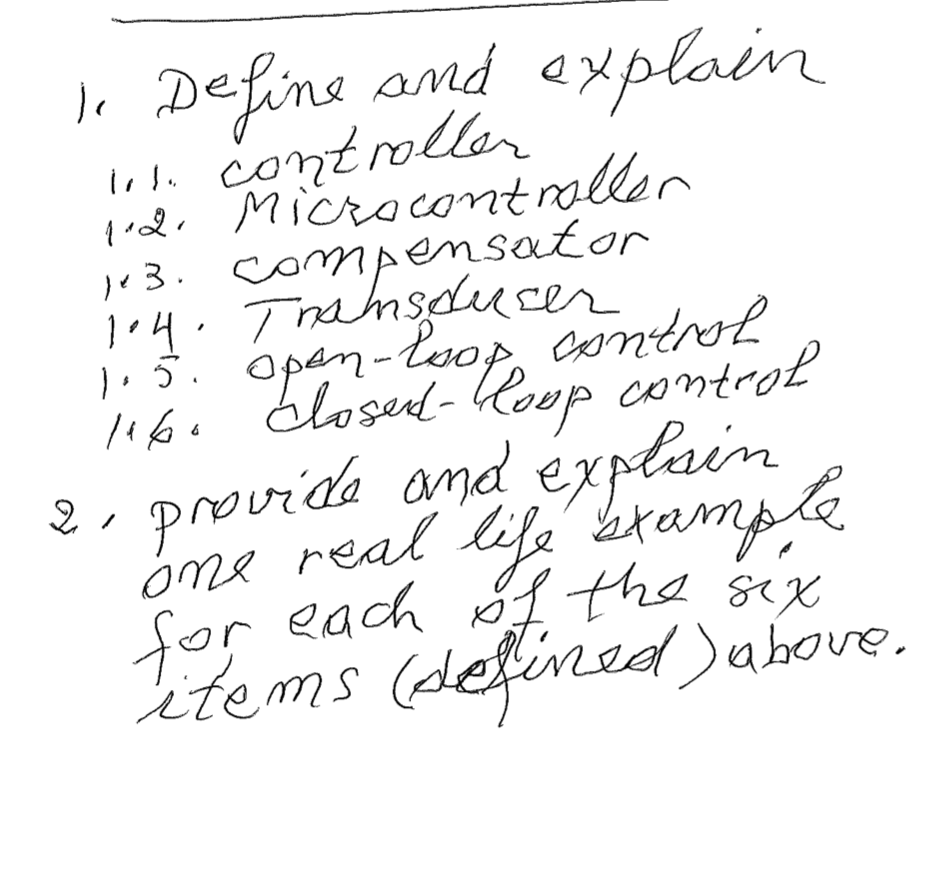 1. Define and explain
1.1. controller
1.2. Microcontroller
1.3. compensator
1.4. Transducer
1.5. open-loop control
1.6. closed-loop control
2. provide and explain
one real life example
for each of the six
items (defined) above.